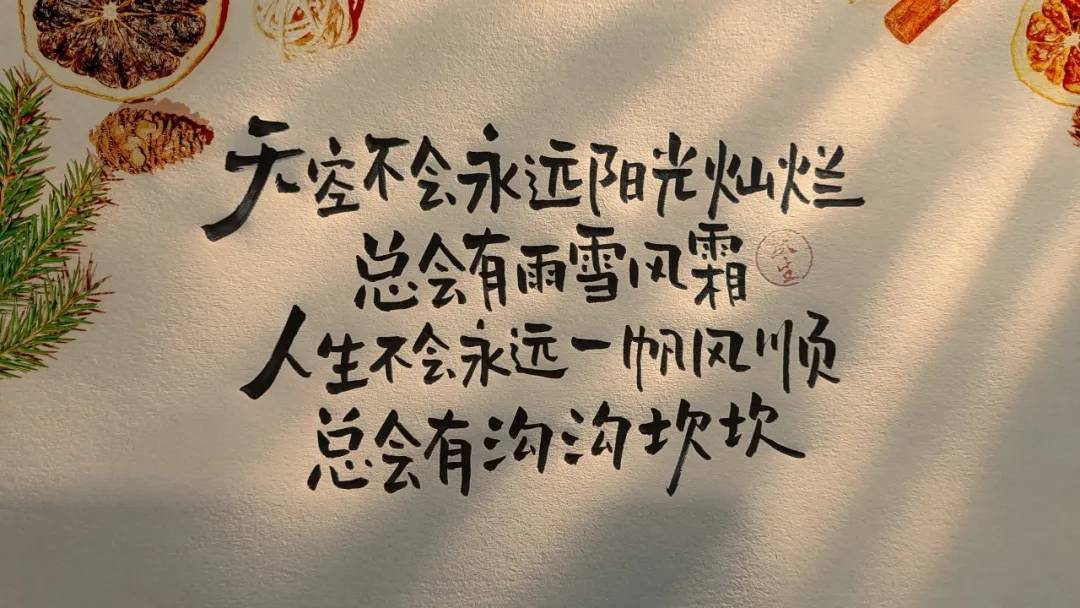 天空不会永远阳光灿烂
总会有雨雪风霜
人生不会永远一帆风顺
总会有沟沟坎坎